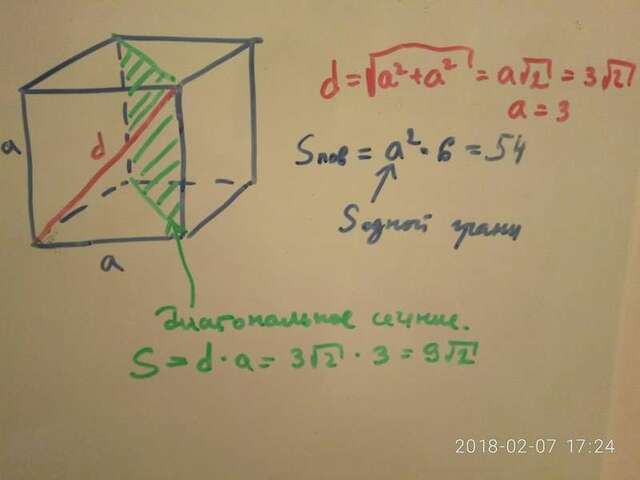 d = √a² + a² = a√2 = 3√2
a = 3
a
d
Sпов = a² · 6 = 54
Sодной грани
a
Диагональное сечение.
S = d · a = 3√2 · 3 = 9√2
2018-02-07 17:24